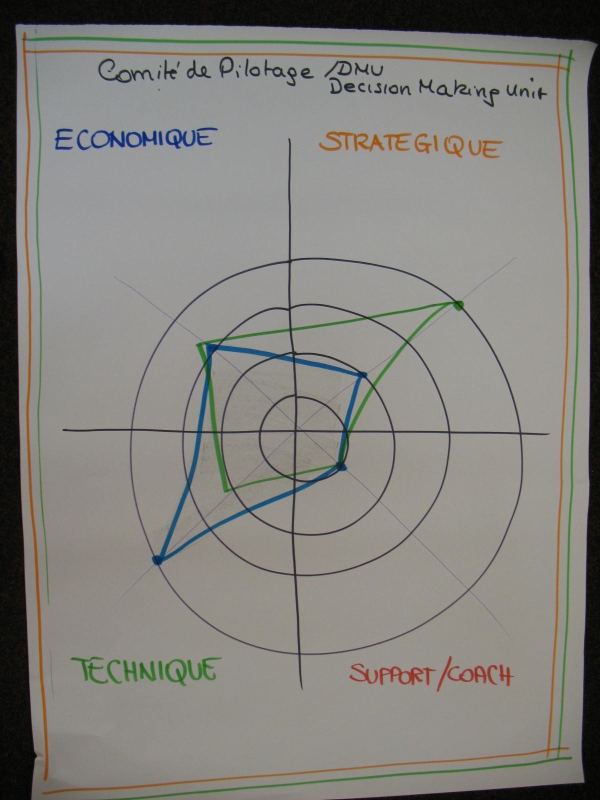 Comité de Pilotage /DMU
Decision Making Unit
ECONOMIQUE
STRATEGIQUE
TECHNIQUE
SUPPORT/COACH